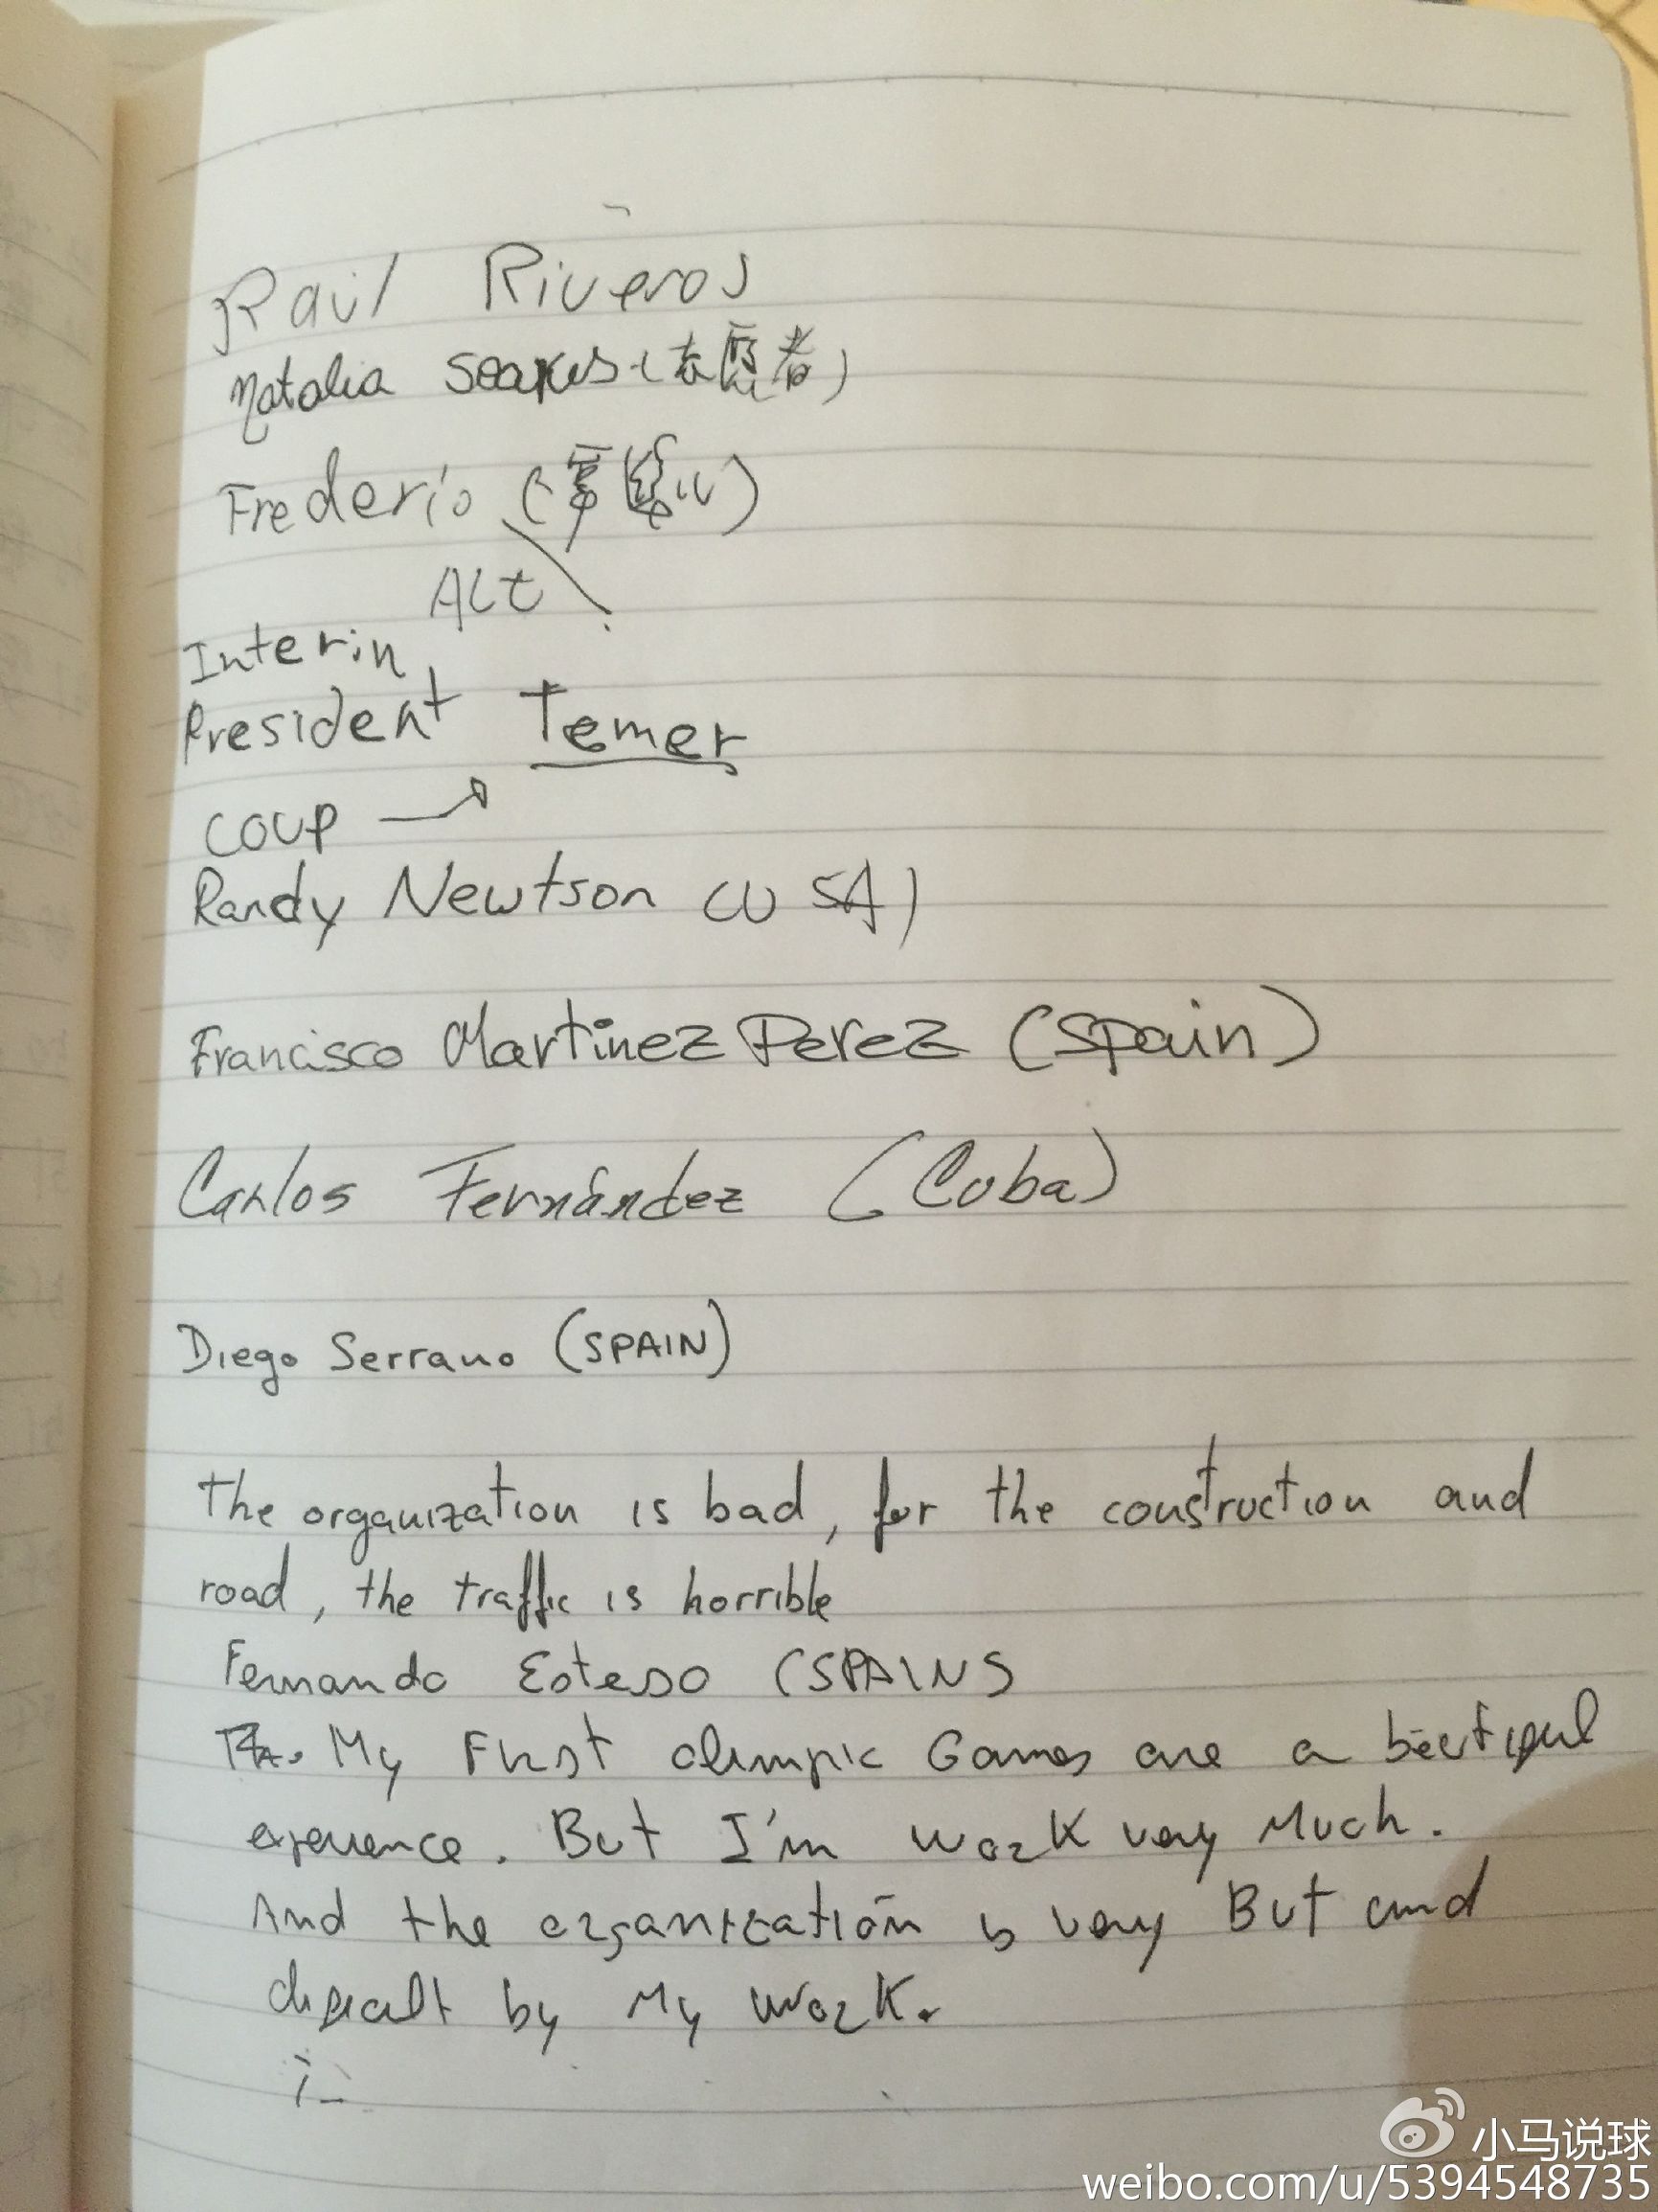 Raúl Riveros
Natalia Soares (志愿者)
Frederic
ALt
Interin
President Temer
COUP
Randy Newtson (USA)
Francisco Martinez Perez (Spain)
Carlos Fernández (Cuba)
Diego Serrano (SPAIN)
The organization is bad, for the construction and
road, the traffic is horrible
Fernando Esteso (SPAIN)
My First olimpic Games are a
experience. But I'm work very Much.
And the organization is very But and
by My work.
小马说球
weibo.com/u/5394548735